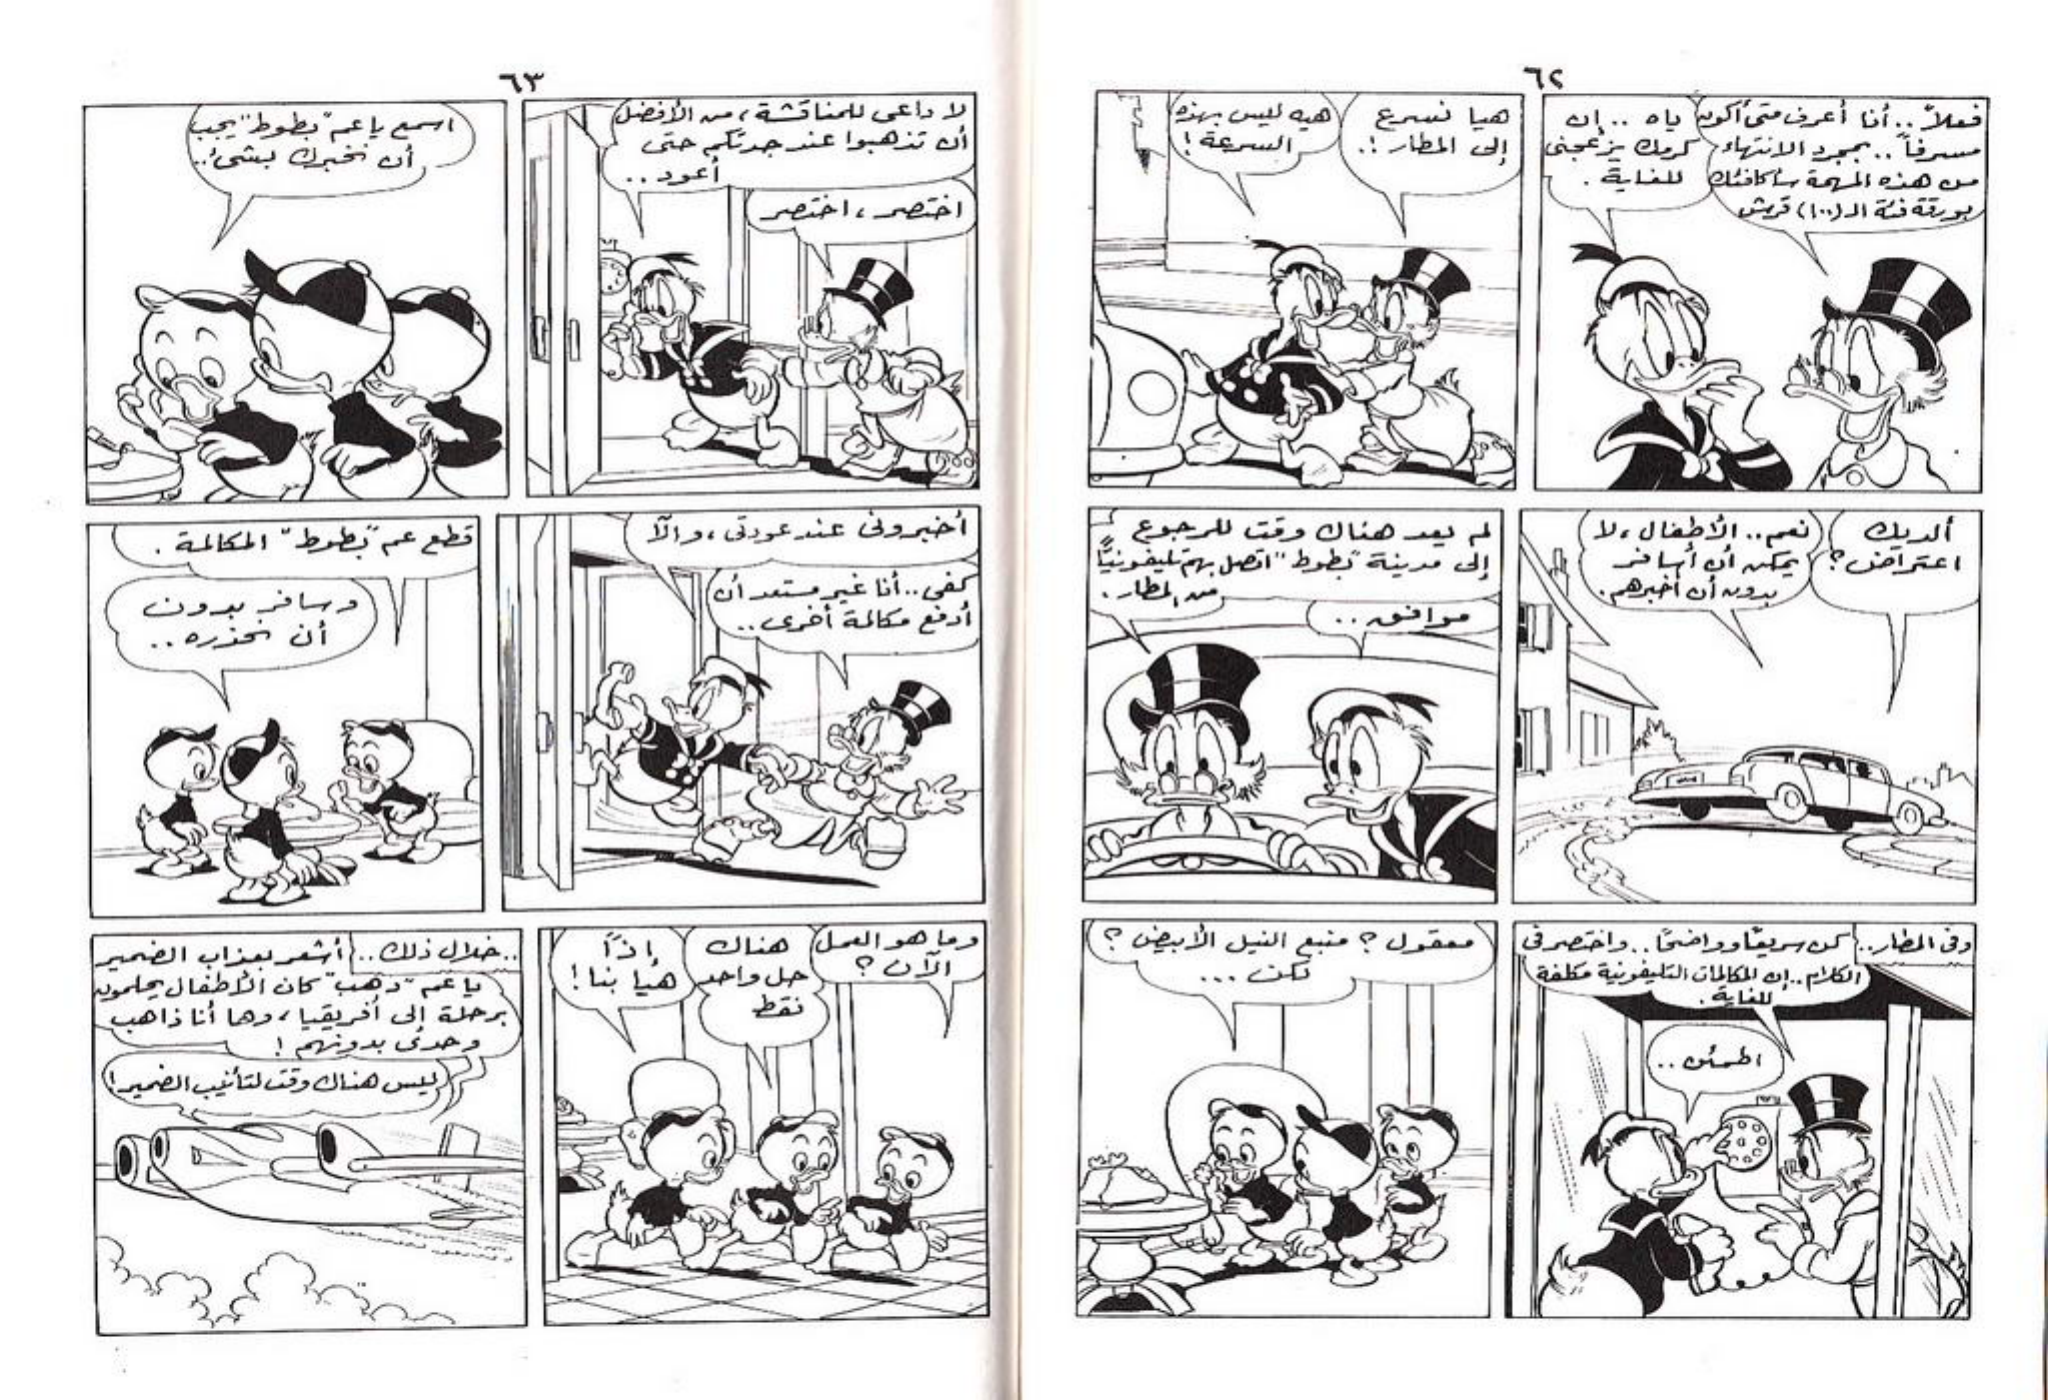 ٦٢
فعلاً.. أنا أعرف متى أكون
مسرفاً.. بمجرد الانتهاء
من هذه المهمة سأكافئك
بورقة فئة الـ (١٠٠) قرش
ياه .. إن
كرمك يزعجنى
للغاية .
هيا نسرع
إلى المطار !.
هيه ليس بهذه
السرعة !
ألديك
اعتراض ؟
نعم.. الأطفال ، لا
يمكن أن أسافر
بدون أن أخبرهم.
لم يعد هناك وقت للرجوع
إلى مدينة "بطوط" اتصل بهم تليفونيًّا
من المطار .
موافق ..
وفى المطار..
كن سريعًا وواضحًا.. واختصر فى
الكلام.. إن المكالمات التليفونية مكلفة
للغاية .
اطمئن ..
معقول ؟ منبع النيل الأبيض ؟
لكن ...
٦٣
لا داعى للمناقشة ، من الأفضل
أن تذهبوا عند جدتكم حتى
أعود ..
اختصر ، اختصر
اسمع يا عم "بطوط" يجب
أن نخبرك بشئ..
أخبرونى عند عودتى ، والآ
كفى.. أنا غير مستعد أن
أدفع مكالمة أخرى ..
قطع عم "بطوط" المكالمة .
وسافر بدون
أن نحذره ..
وما هو العمل
الآن ؟
هناك
حل واحد
فقط
إذاً
هيا بنا !
..خلال ذلك..
أشعر بعذاب الضمير
يا عم "دهب" كان الأطفال يحلمون
برحلة إلى أفريقيا ، وها أنا ذاهب
وحدى بدونهم !
ليس هناك وقت لتأنيب الضمير!